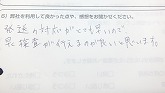 5) 弊社を利用して良かった点や、感想をお聞かせください。
発送の対応がとても早いので
早く検査が行えるのが良いと思います。